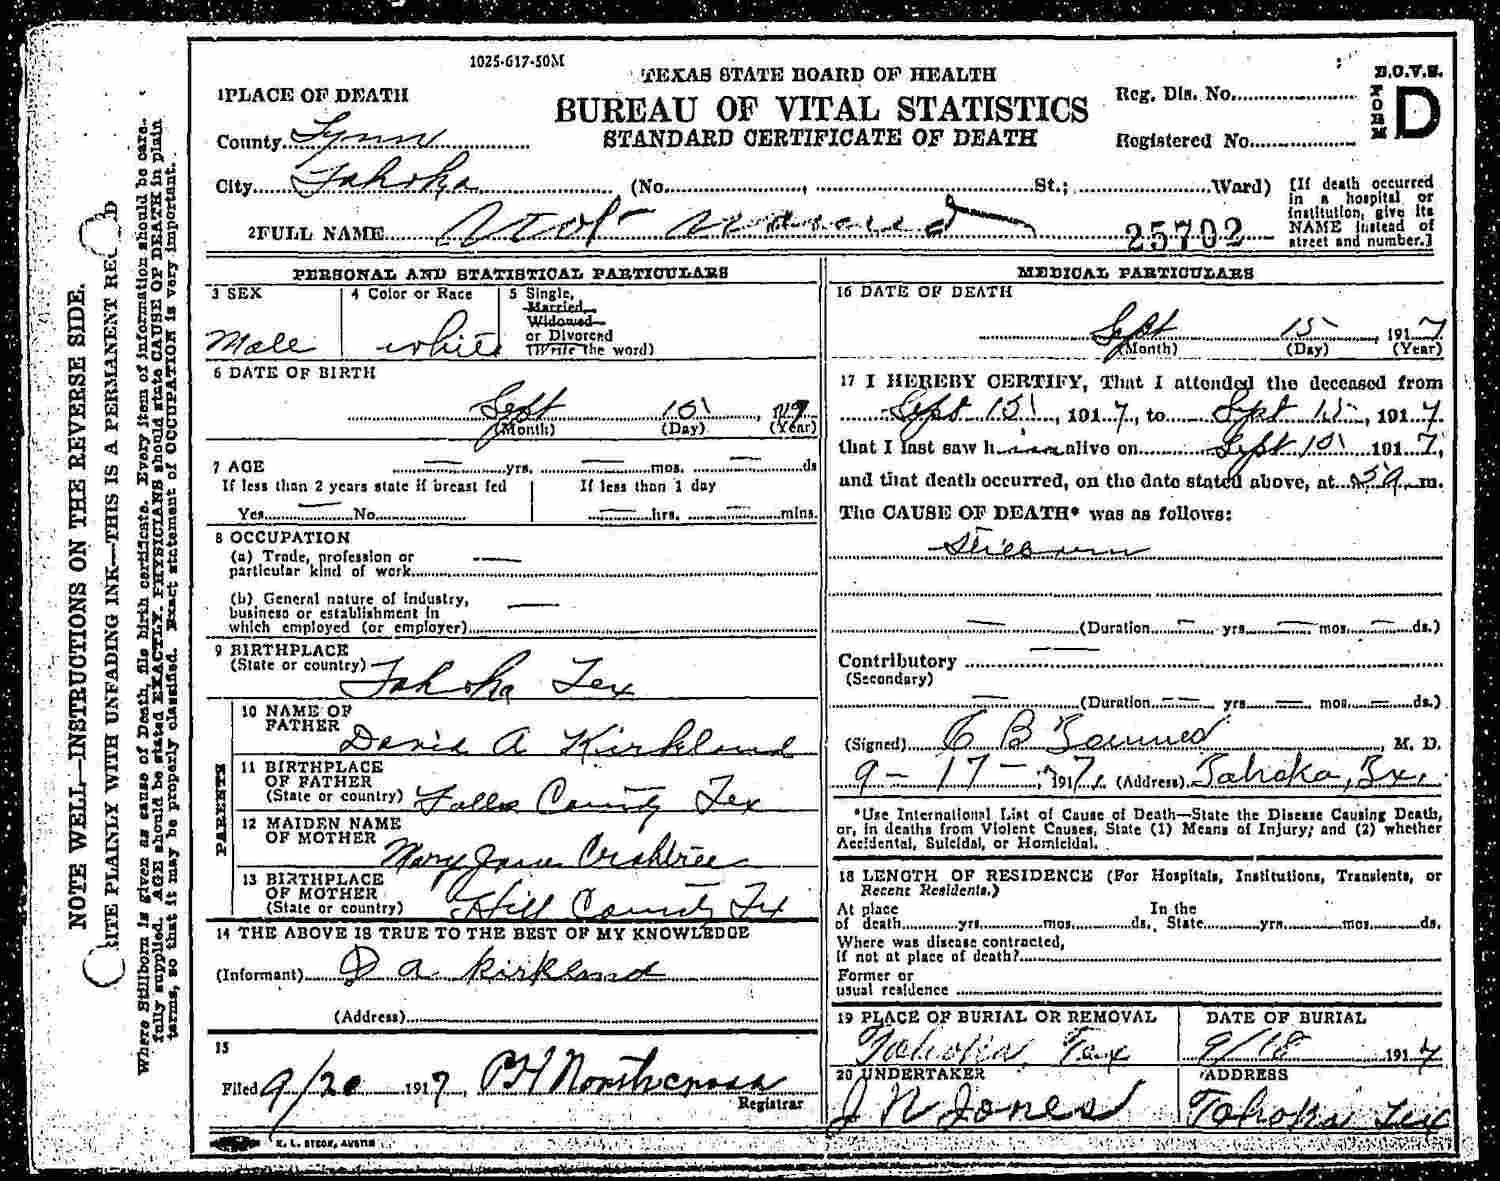 1025-617-50M
TEXAS STATE BOARD OF HEALTH
BUREAU OF VITAL STATISTICS
STANDARD CERTIFICATE OF DEATH
Reg. Dis. No.
Registered No.
B.O.V.S.
FORM D
1 PLACE OF DEATH
County Lynn
City Tahoka (No. , St.; Ward)
[If death occurred in a hospital or institution, give its NAME instead of street and number.]
2 FULL NAME Not named 25702
PERSONAL AND STATISTICAL PARTICULARS
3 SEX
Male
4 Color or Race
white
5 Single,
Married,
Widowed
or Divorced
(Write the word)
6 DATE OF BIRTH
Sept 15
(Month) (Day) (Year)
7 AGE — yrs. — mos. — ds
If less than 2 years state if breast fed
Yes — No
If less than 1 day
— hrs. — mins.
8 OCCUPATION
(a) Trade, profession or —
particular kind of work
(b) General nature of industry, —
business or establishment in
which employed (or employer)
9 BIRTHPLACE
(State or country) Tahoka Tex
PARENTS
10 NAME OF FATHER David A Kirkland
11 BIRTHPLACE OF FATHER
(State or country) Falls County Tex
12 MAIDEN NAME OF MOTHER Mary Jane Crabtree
13 BIRTHPLACE OF MOTHER
(State or country) Hill County Tex
14 THE ABOVE IS TRUE TO THE BEST OF MY KNOWLEDGE
(Informant) D A Kirkland
(Address)
15
Filed 9/20 1917, Northcross
Registrar
MEDICAL PARTICULARS
16 DATE OF DEATH
Sept 15, 1917
(Month) (Day) (Year)
17 I HEREBY CERTIFY, That I attended the deceased from
Sept 15, 1917, to Sept 15, 1917
that I last saw him alive on Sept 15 1917,
and that death occurred, on the date stated above, at m.
The CAUSE OF DEATH* was as follows:
Stillborn
— (Duration — yrs — mos — ds.)
Contributory —
(Secondary)
— (Duration — yrs — mos — ds.)
(Signed) C B , M. D.
9-17-, 1917. (Address) Tahoka, Tx.
*Use International List of Cause of Death—State the Disease Causing Death, or, in deaths from Violent Causes, State (1) Means of Injury; and (2) whether Accidental, Suicidal, or Homicidal.
18 LENGTH OF RESIDENCE (For Hospitals, Institutions, Transients, or Recent Residents.)
At place of death yrs. mos. ds. In the State yrs. mos. ds.
Where was disease contracted,
if not at place of death?
Former or
usual residence
19 PLACE OF BURIAL OR REMOVAL
Tahoka Tex
DATE OF BURIAL
9/18 1917
20 UNDERTAKER
J N Jones
ADDRESS
Tahoka Tex
NOTE WELL—INSTRUCTIONS ON THE REVERSE SIDE.
RITE PLAINLY WITH UNFADING INK—THIS IS A PERMANENT RE D
Where Stillborn is given as cause of Death, file birth certificate. Every item of information should be care-
fully supplied. AGE should be stated EXACTLY. PHYSICIANS should state CAUSE OF DEATH in plain
terms, so that it may be properly classified. Exact statement of OCCUPATION is very important.